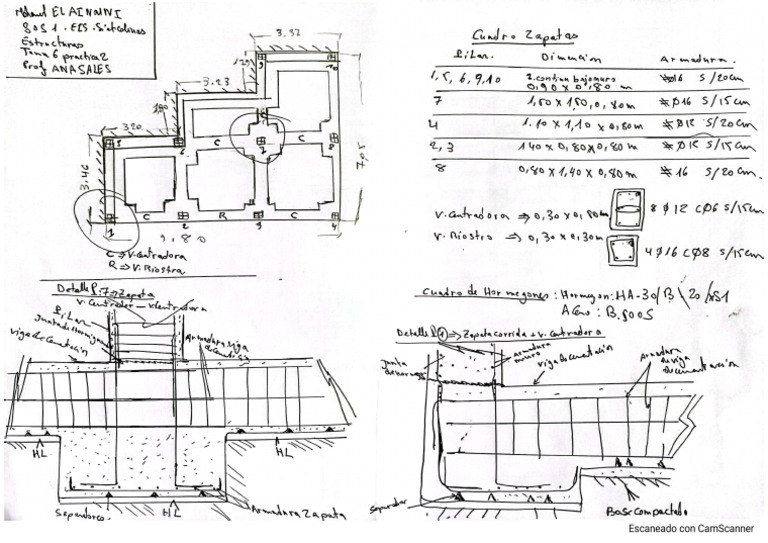 Mohamed ELAINAINI
Estructuras
Tema 6 practica 2
Prof ANASALES
3,92
3,23
1,80
3,20
3,46
7,05
9,80
C C
C R C
1 2 3 4
C ⇒ V. Centradora
R ⇒ V. Riostra
Cuadro Zapatas
Pilar. Dimension Armadura.
1, 5, 6, 9, 10 Z. continua bajo muro
0,90 x 0,80 m #Ø16 S/20cm
7 1,50 x 1,50, 0,80m # Ø16 S/15cm
4 1.10 x 1,10 x 0,80m # Ø12 S/20cm
2, 3 140 x 0,80 x 0,80 m # Ø12 S/15cm
8 0,80 x 1,40 x 0,80m # 16 S/20cm.
V. Centradora ⇒ 0,30 x 0,80m 8 Ø 12 CØ6 S/15cm
V. Riostra ⇒ 0,30 x 0,30m 4 Ø16 CØ8 S/15cm
Cuadro de Hormigones: Hormigon: HA-30/B/20/XS1
Acero: B.500S
Detalle P:7 ⇒ Zapata
V. Centrador - V. Centradora
Pilar
Junta de Hormigonado
viga de cimentacion
Armadura viga
de
HL
HL
Separadores
Armadura Zapata
Detalle P(1) ⇒ Zapata corrida + V. Centradora
Junta
de
Armadura
muro
viga de cimentación
Armadura
de viga
de cimentación
separador
Base compactado
Escaneado con CamScanner